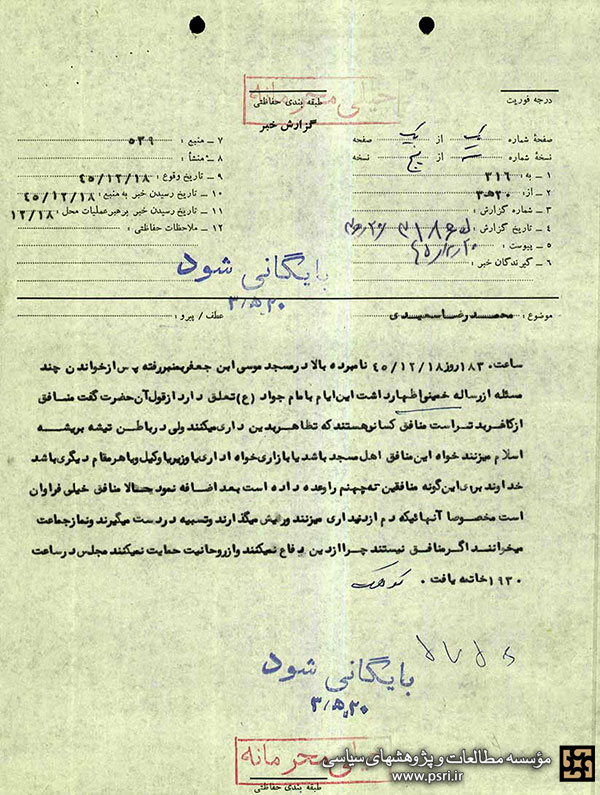 خیلی محرمانه
درجه فوریت
طبقه بندی حفاظتی
گزارش خبر
صفحهٔ شماره یک از یک صفحه
نسخهٔ شماره از پنج نسخه
۱ ــ به : ۳۱۶
۲ ــ از : ۲۰ﻫ۳
۳ ــ شماره گزارش :
۴ ــ تاریخ گزارش :
۵ ــ پیوست :
۶ ــ گیرندگان خبر :
۷ ــ منبع : ۵۳۹
۸ ــ منشأ :
۹ ــ تاریخ وقوع : ۴۵/۱۲/۱۸
۱۰ ــ تاریخ رسیدن خبر به منبع : ۴۵/۱۲/۱۸
۱۱ ــ تاریخ رسیدن خبر برهبر عملیات محل : ۱۲/۱۸
۱۲ ــ ملاحظات حفاظتی :
بایگانی شود
۲۰ﻫ۳
موضوع : محمدرضا سعیدی
عطف / پیرو :
ساعت ۱۸۳۰ روز ۴۵/۱۲/۱۸ نامبرده بالا در مسجد موسی ابن جعفر بمنبر رفته پس از خواندن چند
مسئله از رساله خمینی اظهار داشت این ایام با مام جواد (ع) تعلق دارد از قول آن حضرت گفت منافق
از کافر بدتر است منافق کسانی هستند که تظاهر بدین داری میکنند ولی در باطن تیشه بریشه
اسلام میزنند خواه این منافق اهل مسجد باشد یا بازاری خواه اداری یا وزیر یا وکیل و یا هر مقام دیگری باشد
خداوند برای این گونه منافقین ته جهنم را وعده داده است بعد اضافه نمود حالا منافق خیلی فراوان
است مخصوصا آنهائیکه دم از دنیداری میزنند وریش میگذارند وتسبیه دردست میگیرند ونماز جماعت
میخوانند اگر منافق نیستند چرا از دین دفاع نمیکنند واز روحانیت حمایت نمیکنند مجلس در ساعت
۱۹۳۰ خاتمه یافت .
بایگانی شود
۲۰ﻫ۳
خیلی محرمانه
طبقه بندی حفاظتی
مؤسسه مطالعات و پژوهشهای سیاسی
www.psri.ir